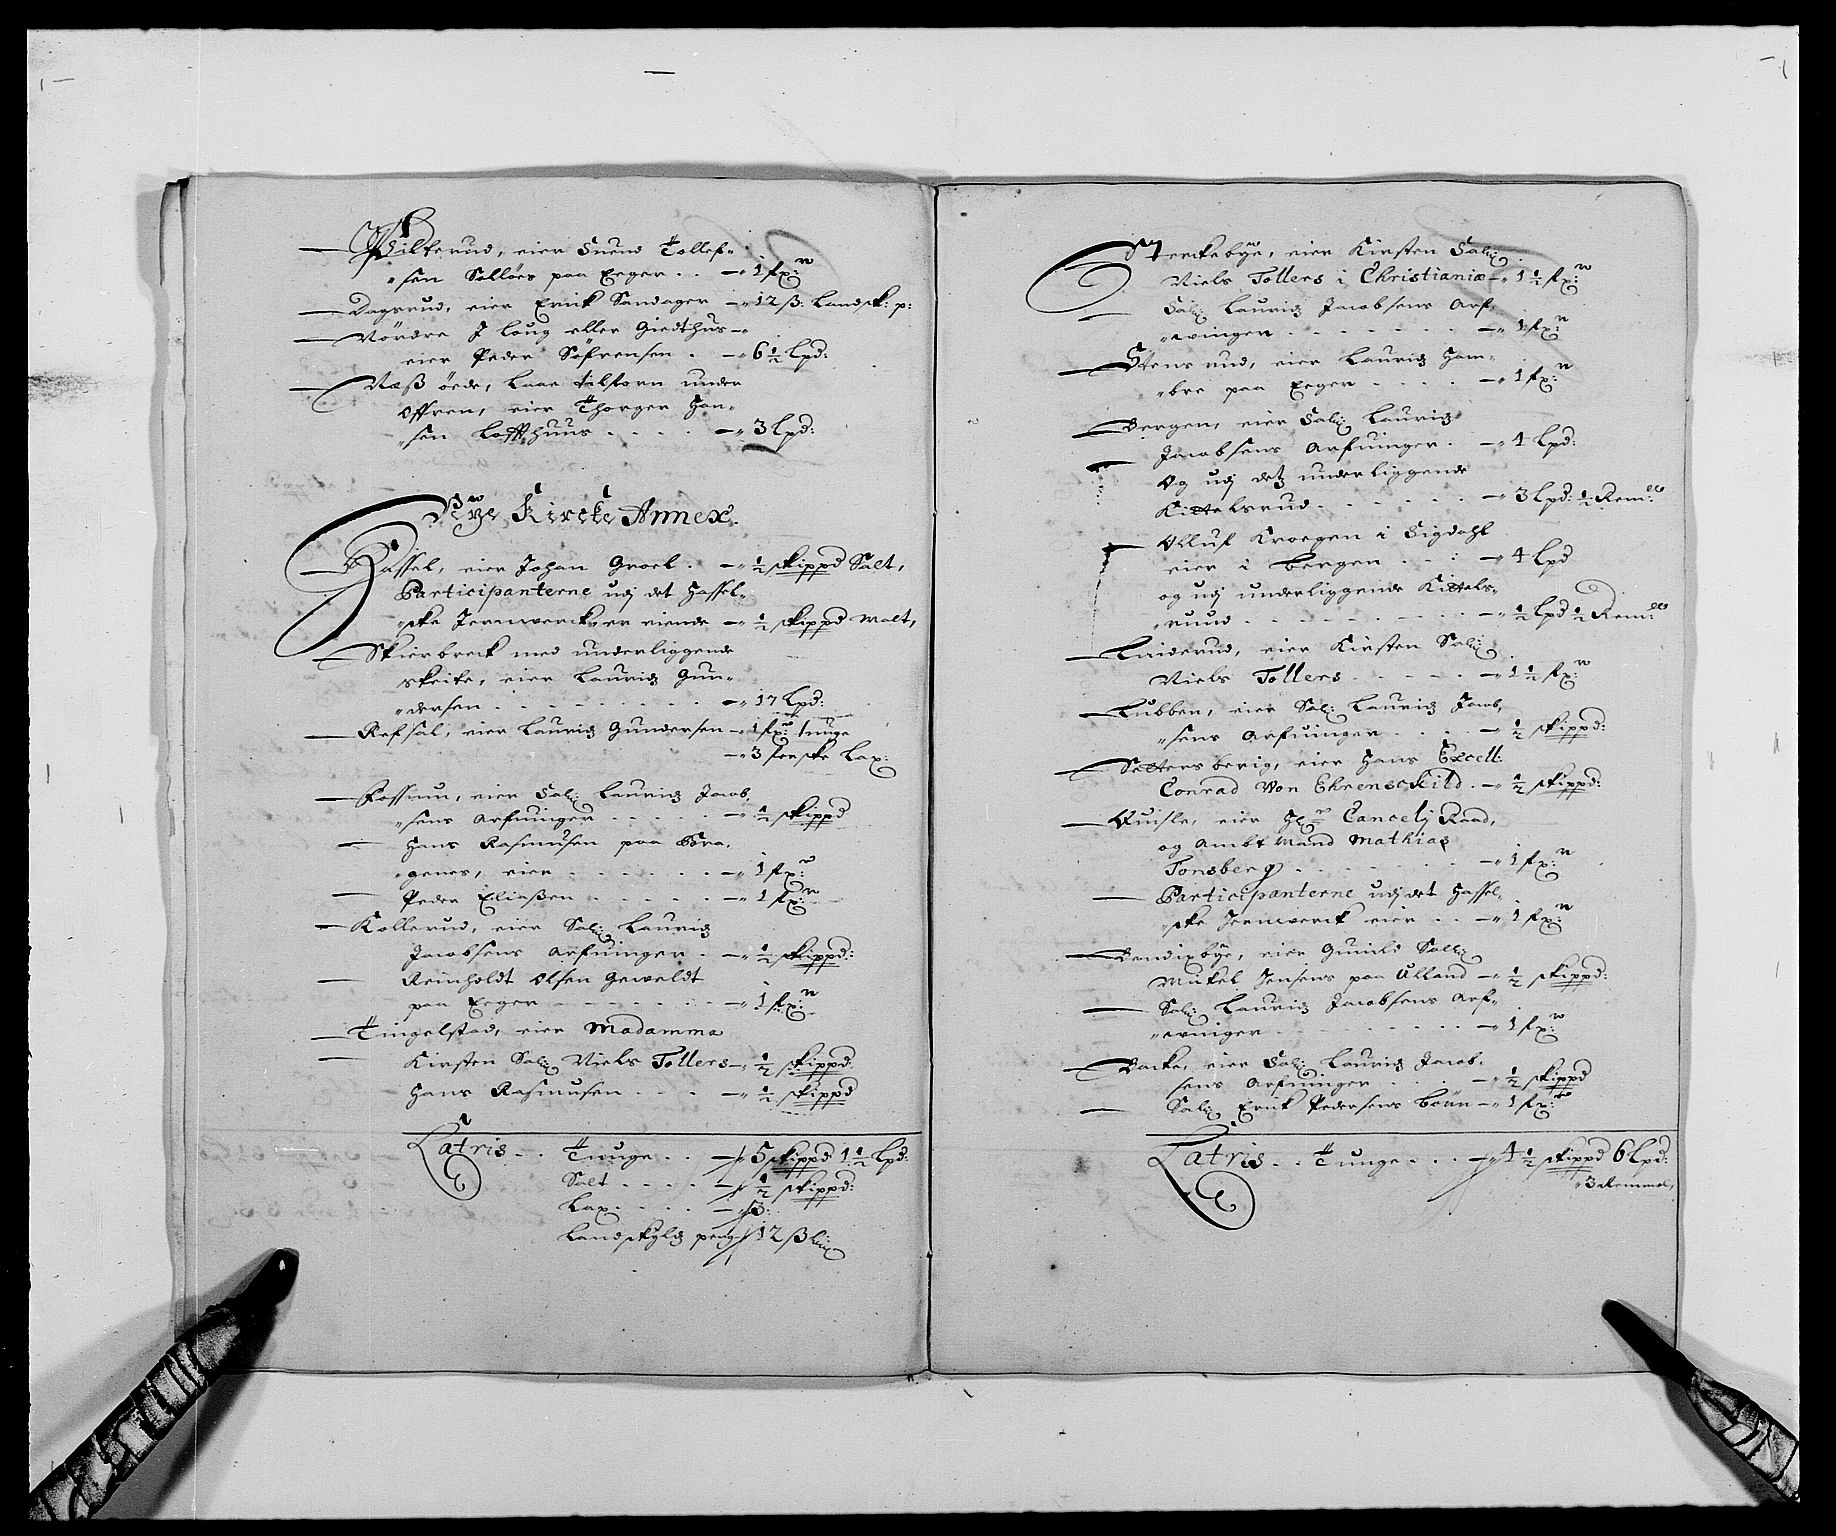 Wilterud, eier Suend Tollef-
sen Solløes paa Eeger . . — 1 fx:
Dagsrud, eier Erick Sandager — 12 ß: Landsk: p:
Nördre J loug eller Giedthus
eier Peder Söfrensen . — 6 1/2 lpd:
Næß öede, laae tilforn under
Offren, eier Thorger Han-
sen Loffthuus . . . . — 3 lpd:
Nye Kircke Annex.
Hassel, eier Johan Groel . — 1/2 skippd Salt,
Participanterne udj det Hassel-
ske Jernwerck er eiende — 1/2 skippd Malt,
Skierbreck med underliggende
Skeite, eier Lauridz Gun-
dersen . . . . . . . — 17 lpd:
Refsal, eier Lauridz Gundersen — 1 fx: tunge
— 3 ferske Lax:
Fossum, eier Sal: Lauridz Jacob,
sens Arfuinger . . . . . — 1/2 skippd
Hans Rasmusen paa Bra,
genes, eier . . . . . . — 1 fx:
Peder Eliaßen . . . . . — 1 fx:
Kollerud, eier Sal: Lauridz
Jacobsens Arfuinger . — 1/2 skippd:
Reinholdt Olsen Geweldt
paa Eeger . . . . . . — 1 fx:
Tingelstad, eier Madamma
Kirsten Sal: Niels Tollers — 1/2 skippd
Hans Rasmusen . . . — 1/2 skippd
Latris . . Tunge . . — 5 skippd 1 1/2 lpd:
Salt . . . . — 1/2 skippd:
Lax . . . . — 3:
Landskyldz peng — 12 ß
Sterckebye, eier Kirsten Sal:
Niels Tollers i Christianiæ — 1 1/2 fx:
Sal: Lauridz Jacobsens Arf,
winger . . . . . . . — 1 fx:
Stensrud, eier Lauridz Ham-
bre paa Eeger . . . . — 1 fx:
Bergen, eier Sal: Lauridz
Jacobsens Arfuinger . — 4 lpd:
Og udj det underliggende
Kittelsrud . . . . . . — 3 lpd: 1/2 Rem:
Olluf Kroegen i Sigdahl
eier i Bergen . . . — 4 lpd
og udj underliggende Kittels-
ruud . . . . . . . — 1/2 lpd 1/2 Rem:
Luiderud, eier Kirsten Sal:
Niels Tollers . . . . . — 1 1/2 fx:
Lubben, eier Sal: Lauridz Jacob,
sens Arfuinger . . . . — 1/2 skippd:
Settersberig, eier Hans Excell:
Conrad Von Ehrenschild . — 1/2 skippd:
Vuisle, eier Hr: Cancelj Raad,
og Ambt Mand Mathias
Tonsberg . . . . . . — 1 fx:
Participanterne udj det Hassel,
ske Jernwerck eier . . — 1 fx:
Bendixbye, eier Gunild Sall:
Mickel Jensens paa Ålland — 1/2 skippd:
Sal: Lauridz Jacobsens Arf-
winger . . . . . . . . — 1 fx:
Backe, eier Sal: Lauridz Jacob,
sens Arfuinger . . . . — 1/2 skippd
Sal: Erick Pedersens Börn — 1 fx:
Latris . . Tunge . . . — 4 1/2 skippd 6 lpd:
3 Remmel,